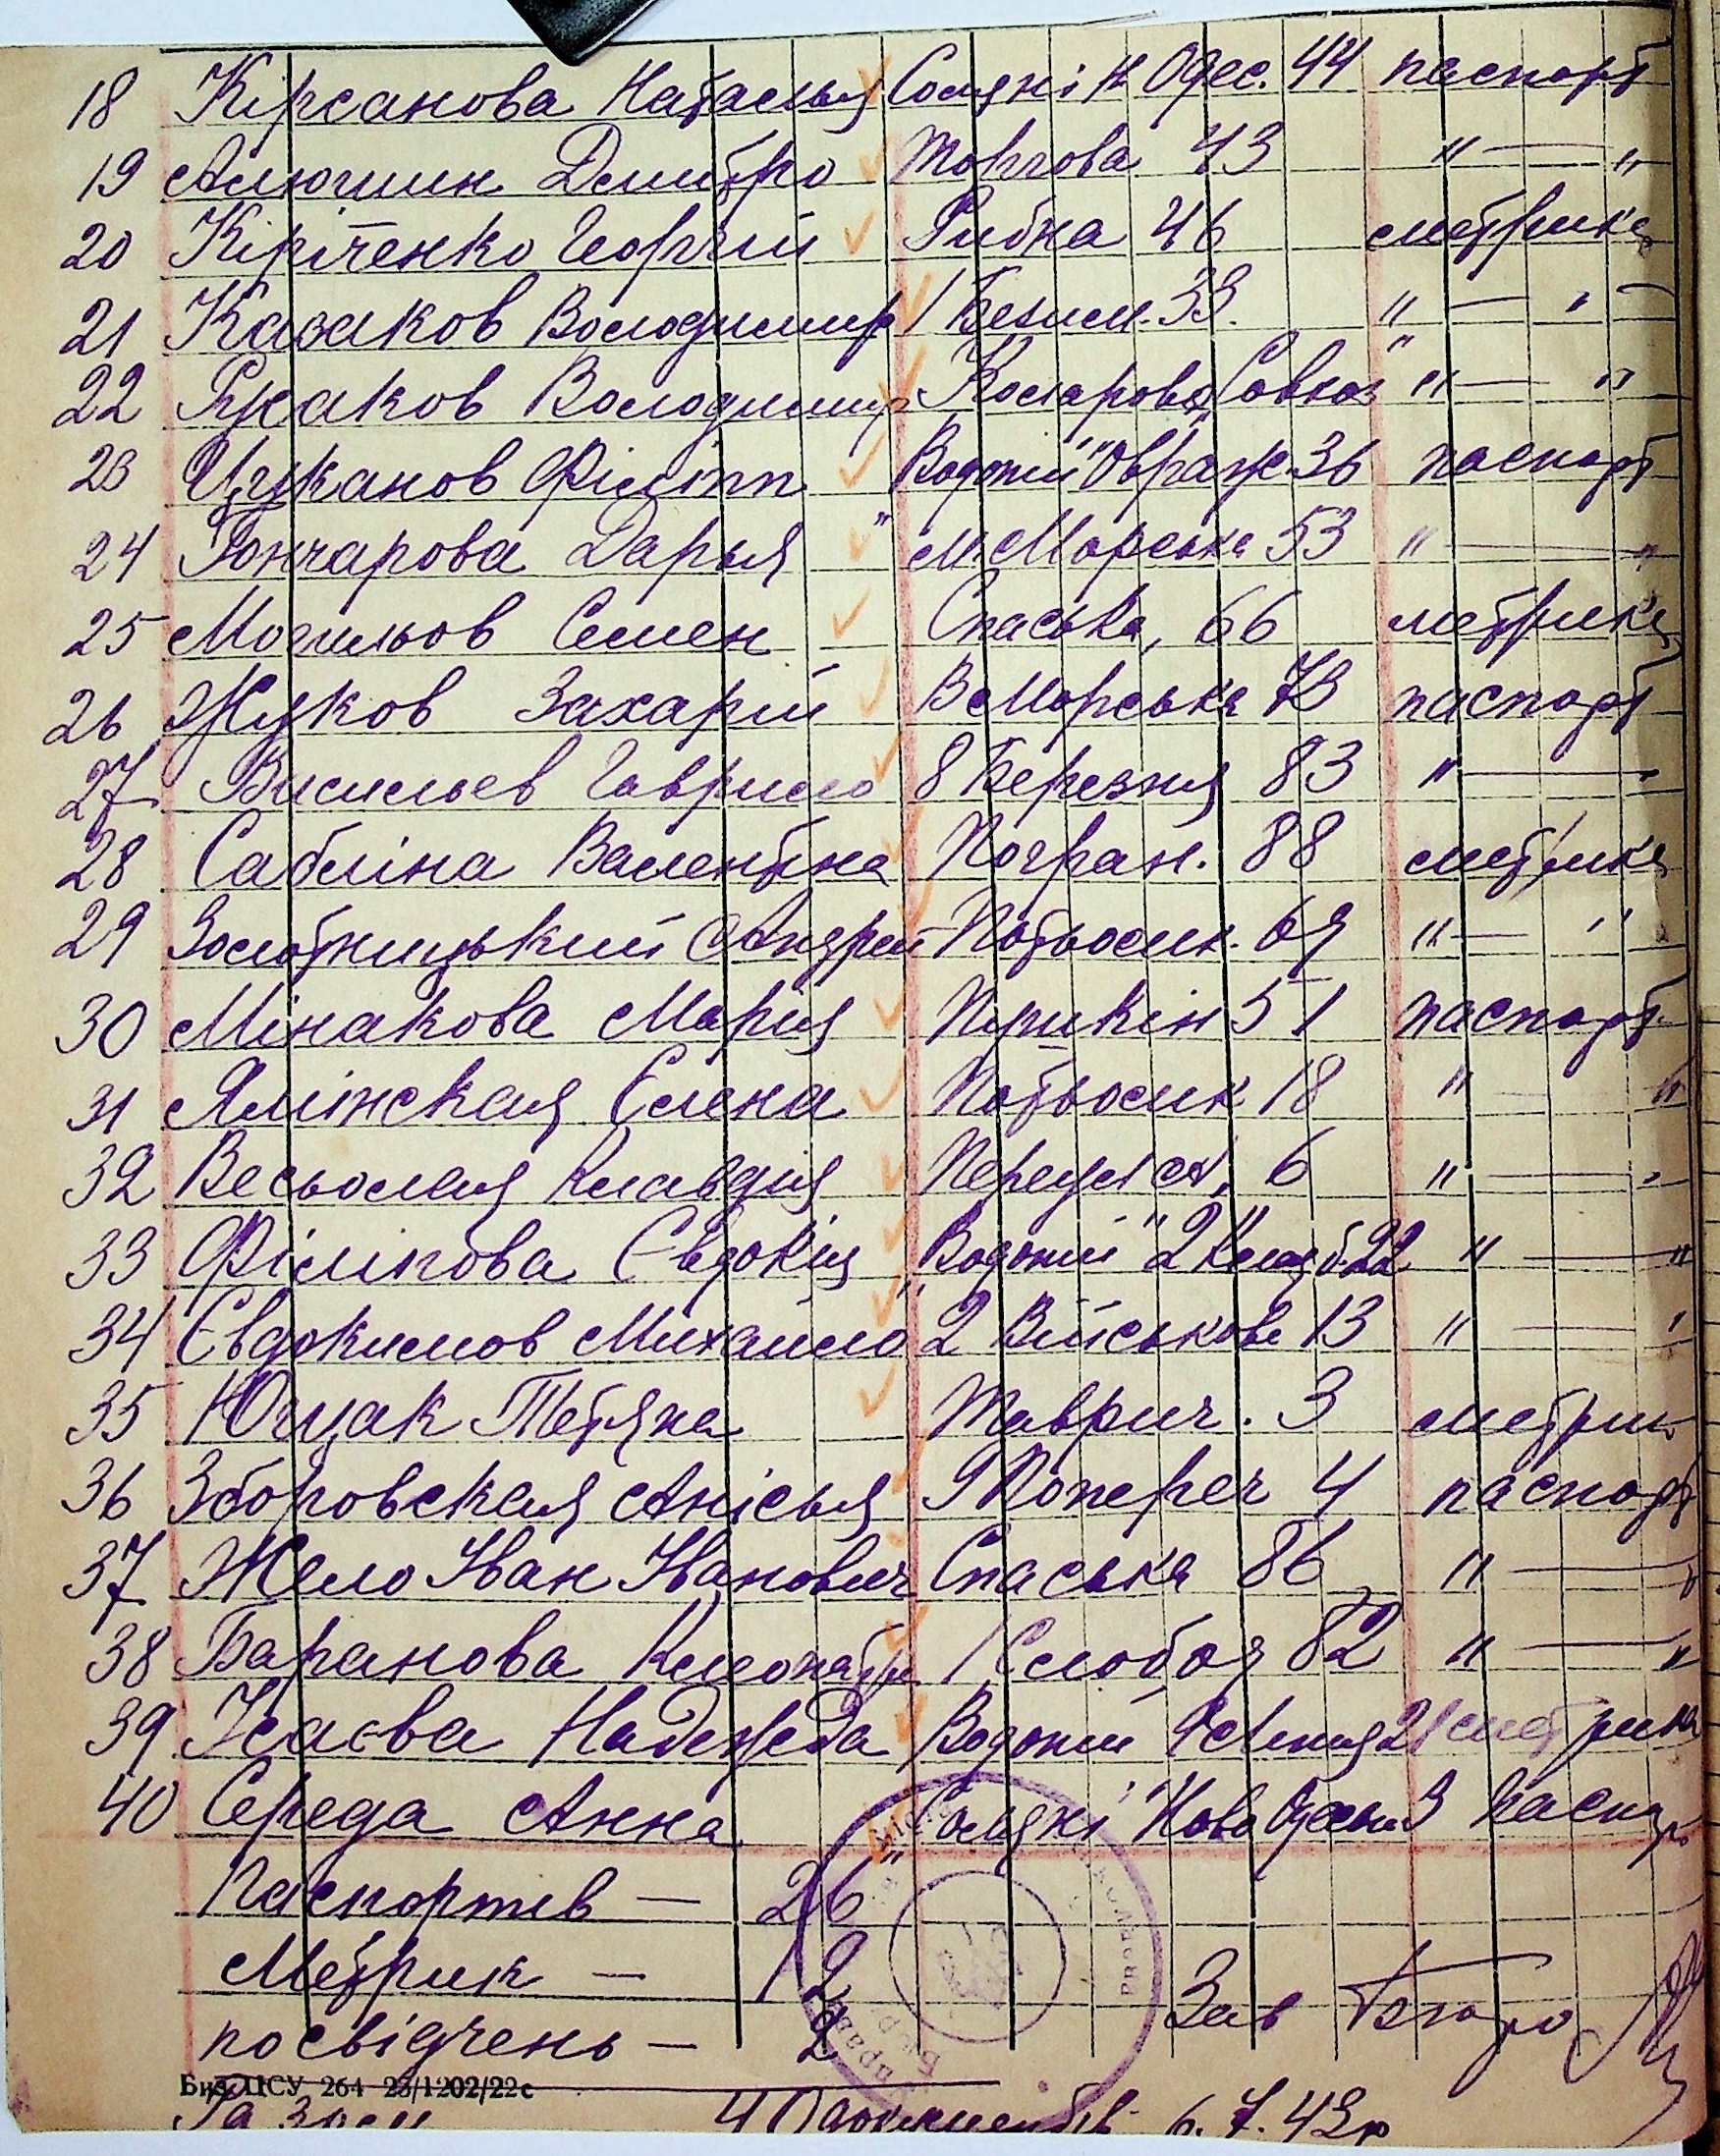 18 Кірсанова Наталья „Соляні“ Н Одес. 44 паспорт
19 Алюшин Дмитро Торгова 43 " — "
20 Кіріченко Георгій Рибна 46 метрика
21 Казаков Володимир 1 Безим. 33. " — "
22 Русаков Володимир Косарова „Совхоз“ " — "
23 Цуканов Філіпп Водопій "Овраж 36 паспорт
24 Гончарова Дарья м. Морська 53 " — "
25 Могильов Семен Спаська, 66 метрика
26 Жуков Захарій В Морська 73 паспорт
27 Васильев Гаврило 8 Березня 83 " —
28 Сабліна Валентина Погран. 88 метрика
29 Золотницький Андрей Потьомк. 69 " — "
30 Мінакова Марія Пушкін 51 паспорт
31 Ялінская Єлена Потьомк 18 " — "
32 Весьолая Клавдія 6 " —
33 Філіпова Євдокія Водопій" 2 22 " — "
34 Євдокимов Михайло 2 Військова 13 " — "
35 Ющак Тетяна Таврич. 3 метрик
36 Зборовская Анісья 9 Попереч 4 паспорт
37 Жело Іван Іванович Спаська 86 " — "
38 Баранова Клеопатра 1 Слобод 82 " — "
39 Ісаєва Надежда Водопій Линия 21 метрика
40 Середа Анна „Соляні“ Ново Одеська 3 паспор
Паспортів — 26
Метрик — 12
посвідчень — 2
Зав Бюро
Биз. ЦСУ 264 25/1202/22с
40 документів 6.7.43р